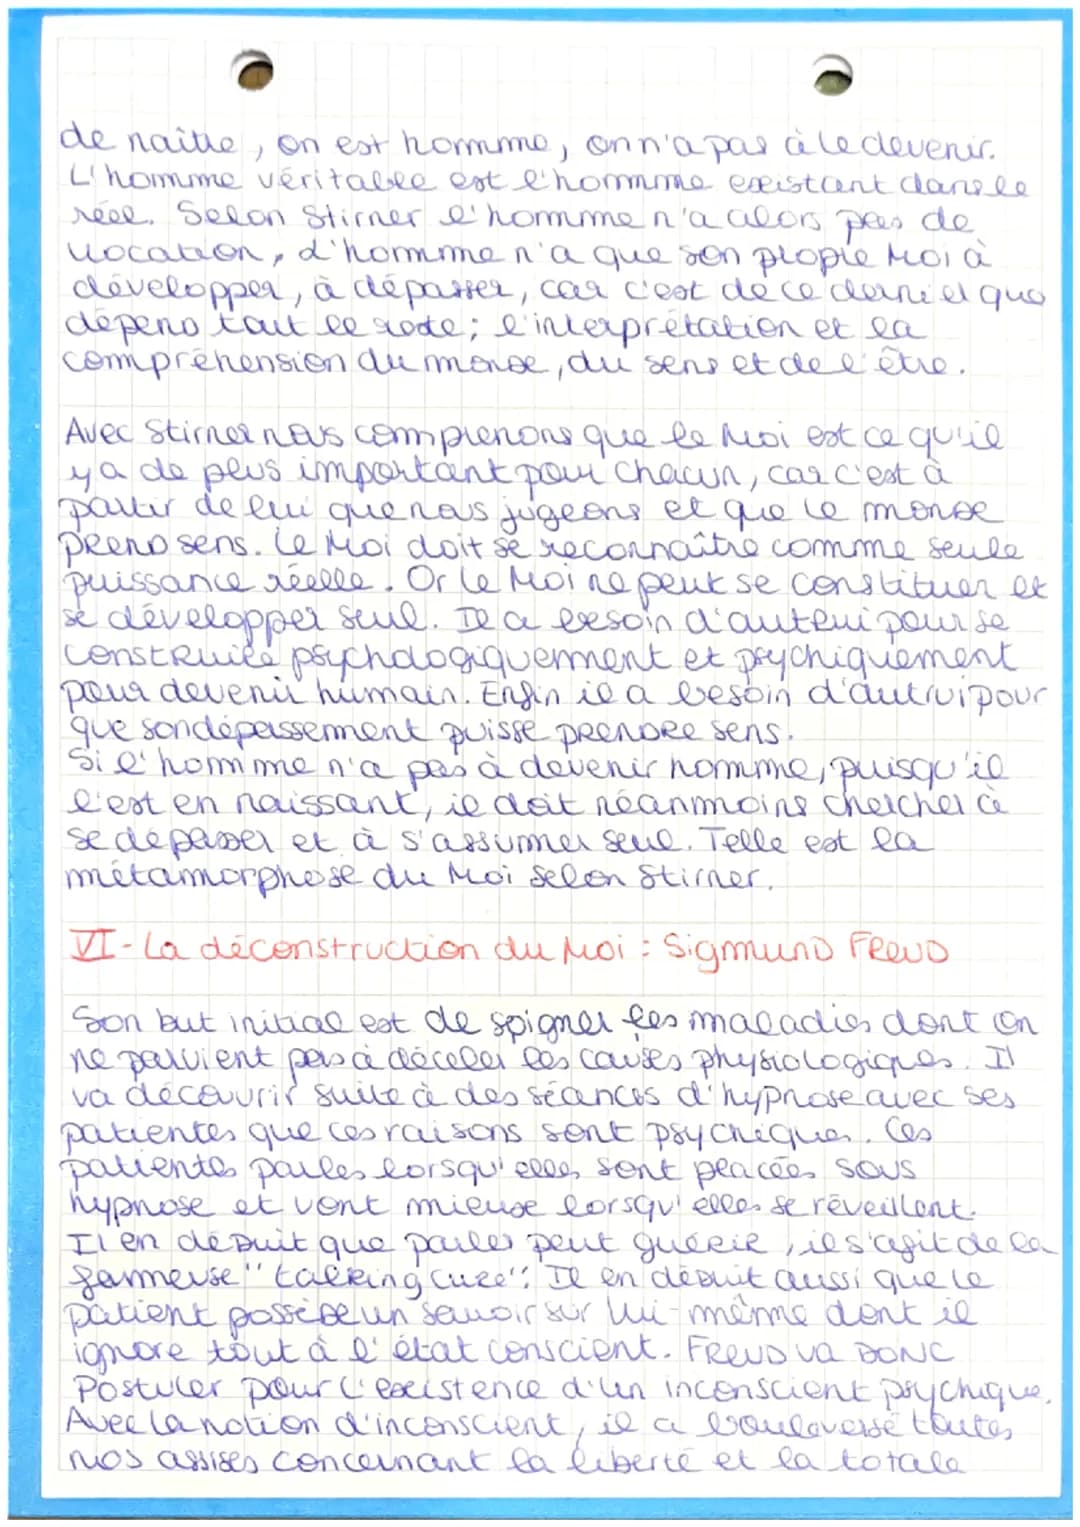 de naître, on est homme, on n'a pas à le devenir.
L'homme véritable est l'homme existant dans le
réel. Selon Stirner l'homme n'a alors pas de
vocation, l'homme n'a que son propre Moi à
développer, à dépasser, car c'est de ce dernier que
dépend tout le reste; l'interprétation et la
compréhension du monde, du sens et de l'être.
Avec Stirner nous comprenons que le Moi est ce qu'il
y a de plus important pour chacun, car c'est à
partir de lui que nous jugeons et que le monde
prend sens. Le Moi doit se reconnaître comme seule
puissance réelle. Or le Moi ne peut se constituer et
se développer seul. Il a besoin d'autrui pour se
construire psychologiquement et psychiquement
pour devenir humain. Enfin il a besoin d'autrui pour
que son dépassement puisse prendre sens.
Si l'homme n'a pas à devenir homme, puisqu'il
l'est en naissant, il doit néanmoins chercher à
se dépasser et à s'assumer seul. Telle est la
métamorphose du Moi selon Stirner.
VI - La déconstruction du Moi : Sigmund Freud
Son but initial est de soigner les maladies dont on
ne parvient pas à déceler les causes physiologiques. Il
va découvrir suite à des séances d'hypnose avec ses
patientes que ces raisons sont psychiques. Ces
patientes parles lorsqu'elles sont placées sous
hypnose et vont mieux lorsqu'elles se réveillent.
Il en déduit que parler peut guérir, il s'agit de la
fameuse "talking cure". Il en déduit aussi que le
patient possède un savoir sur lui-même dont il
ignore tout à l'état conscient. Freud va donc
Postuler pour l'existence d'un inconscient psychique.
Avec la notion d'inconscient, il a bouleversé toutes
nos assises concernant la liberté et la totale